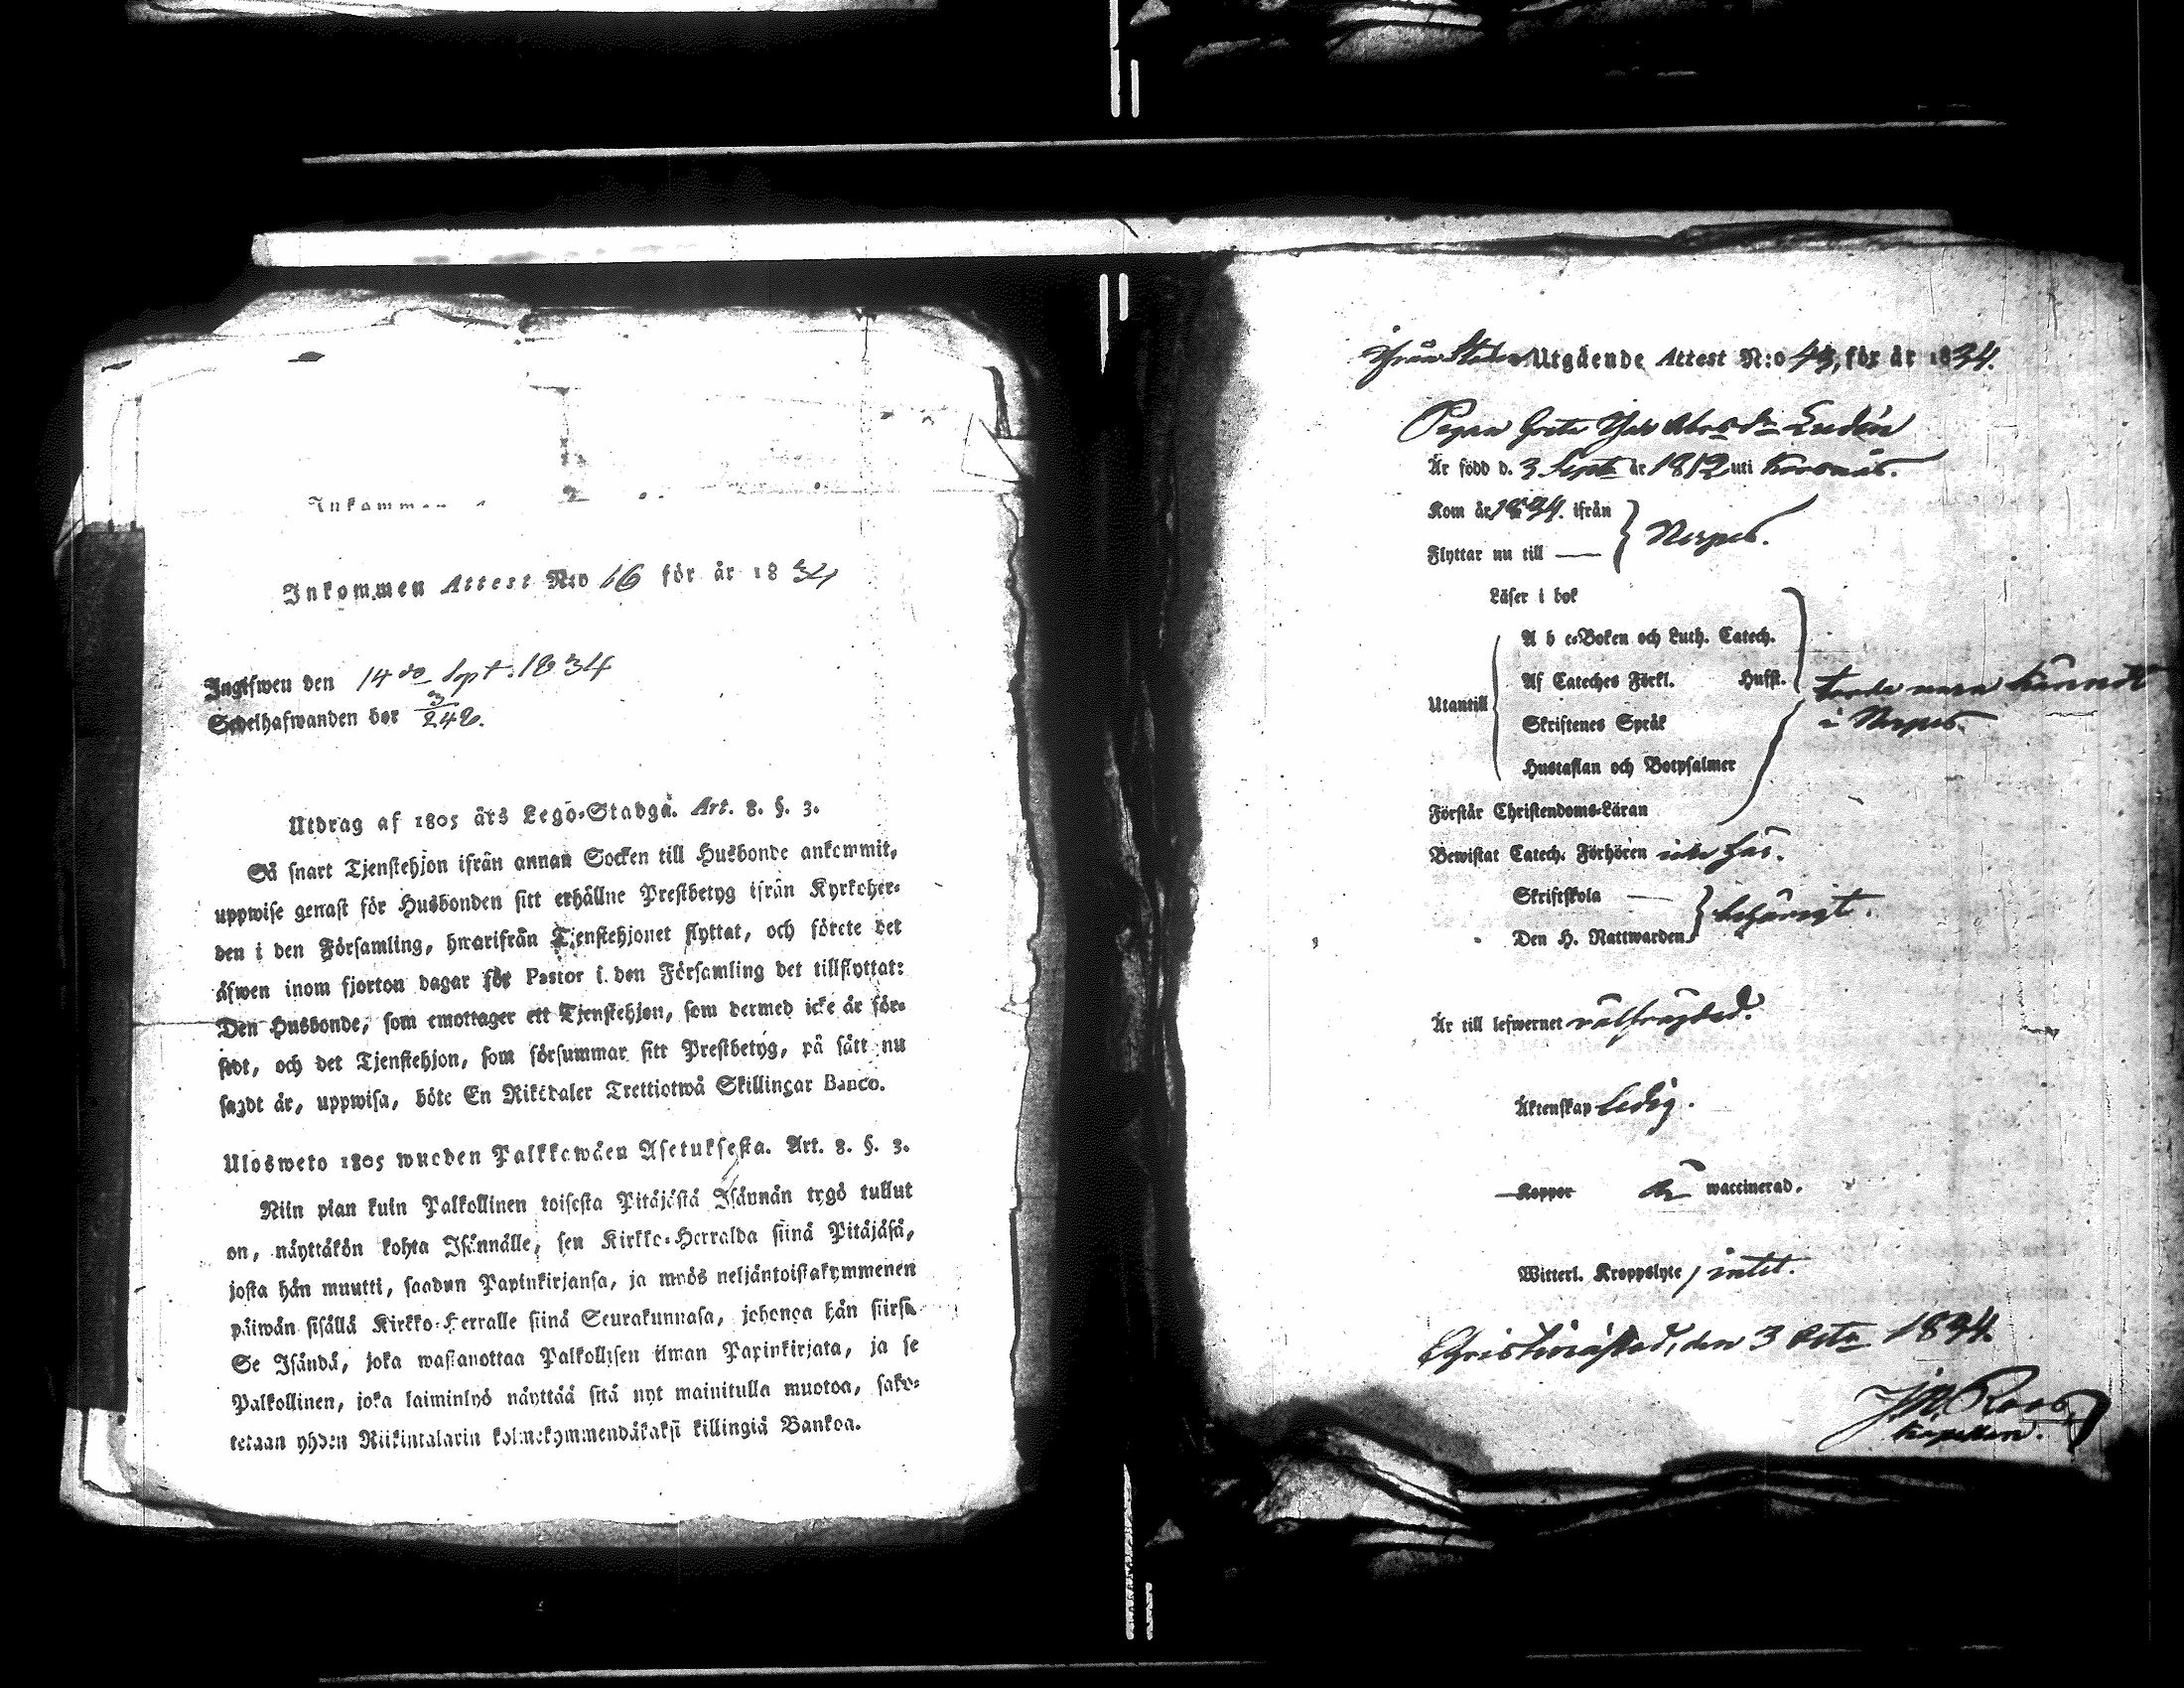 Inkommen
Inkommen Attest N:o 16 för år 1834
Ingifwen den 14de Sept. 1834
Sedelhafwanden bor 3/242.
Utdrag af 1805 års Lego-Stadga. Art. 8. §. 3.
Så snart Tjenstehjon ifrån annan Socken till Husbonde ankommit,
uppwise genast för Husbonden sitt erhållne Prestbetyg ifrån Kyrkoher-
den i den Församling, hwarifrån Tjenstehjonet flyttat, och förete det
äfwen inom fjorton dagar för Pastor i den Församling det tillflyttat:
Den Husbonde, som emottager ett Tjenstehjon, som dermed icke är för-
sedt, och det Tjenstehjon, som försummar sitt Prestbetyg, på sätt nu
sagdt är, uppwisa, böte En Riksdaler Trettiotwå Skillingar Banco.
Ulosweto 1805 wuoden Palkkawäen Asetuksesta. Art. 8. §. 3.
Niin pian kuin Palkollinen toisesta Pitäjästä Isännän tygö tullut
on, näyttäkön kohta Isännälle, sen Kirkko-Herralda siinä Pitäjäsä,
josta hän muutti, saadun Papinkirjansa, ja myös neljäntoistakymmenen
päiwän sisällä Kirkko-Herralle siinä Seurakunnasa, johonga hän siirsä.
Se Isändä, joka wastanottaa Palkollisen ilman Papinkirjata, ja se
Palkollinen, joka laiminlyö näyttää sitä nyt mainitulla muotoa, sako-
tetaan yhden Riikintalarin kolmekymmendäkaksi killingiä Bankoa.
Ifrån Staden Utgående Attest N:o 43, för år 1834.
Pigan Greta Abrsdr
Är född d. 3 Sept. år 1812 uti Korsnäs.
Kom år 1834. ifrån
Flyttar nu till — } Nerpes.
Läser i bok
A b c-Boken och Luth. Catech.
Af Cateches Förkl. Hufst.
torde vara kändt
Utantill
Skriftenes Språk
i Nerpes.
Hustaflan och Botpsalmer
Förstår Christendoms-Läran
Bewistat Catech. Förhören icke här.
Skriftskola —
Den H. Nattwarden } behörigt.
Är till lefwernet välfrägdad.
Äktenskap ledig.
Koppor är waccinerad.
Witterl. Kroppslyte, intet.
Christinæstad, den 3 Octr 1834.
Kapellan.